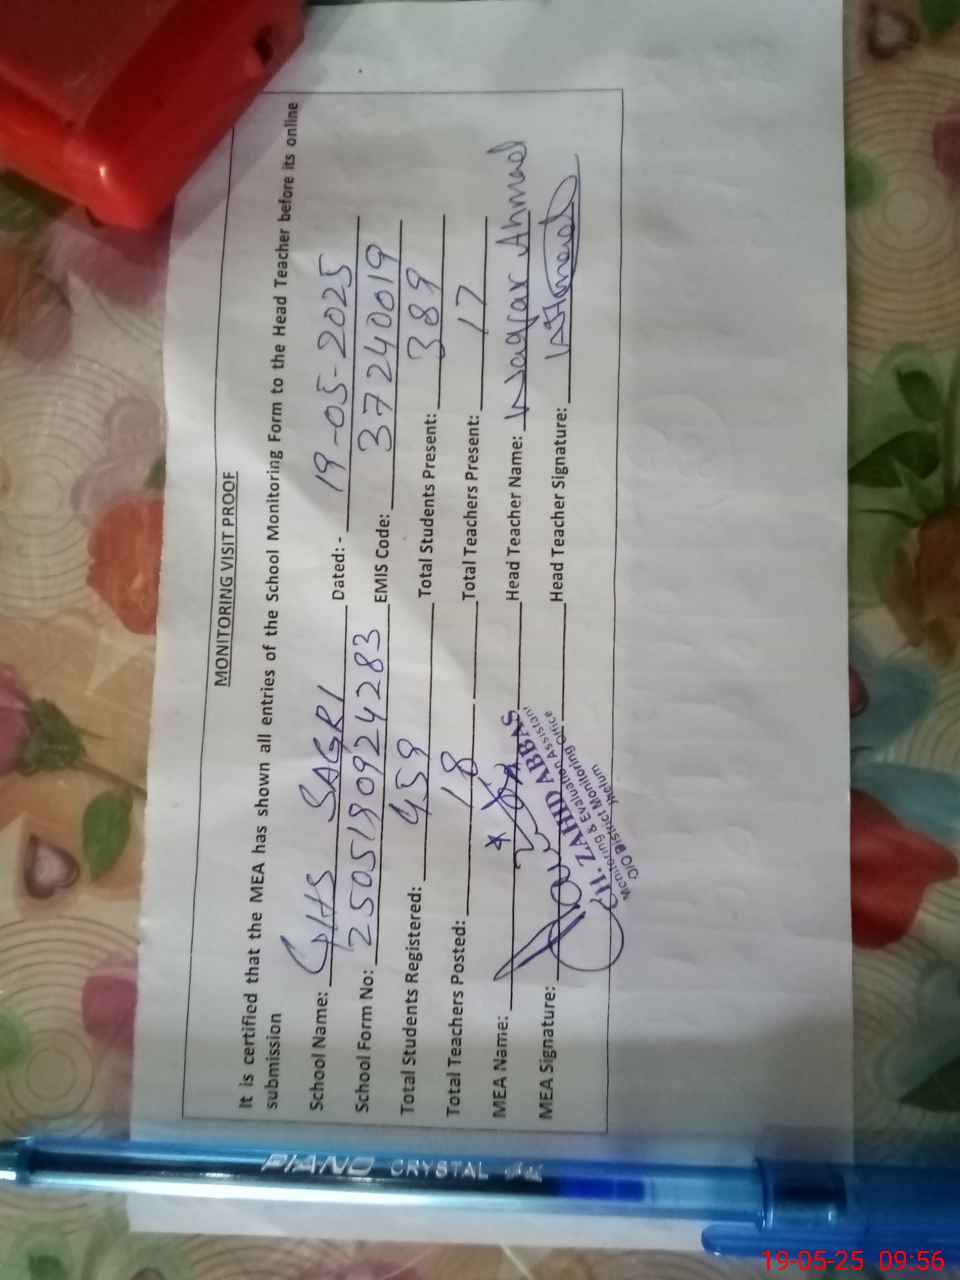 MONITORING VISIT PROOF
It is certified that the MEA has shown all entries of the School Monitoring Form to the Head Teacher before its online
submission
School Name: GHS SAGRI Dated: - 19-05-2025
School Form No: 2505190924283 EMIS Code: 37240019
Total Students Registered: 459 Total Students Present: 389
Total Teachers Posted: 18 Total Teachers Present: 17
MEA Name: Head Teacher Name: Waqar Ahmad
MEA Signature: Head Teacher Signature:
CH. ZAHID ABBAS
Monitoring & Evaluation Assistant
O/O District Monitoring Office
Jhelum
PIANO CRYSTAL
19-05-25 09:56